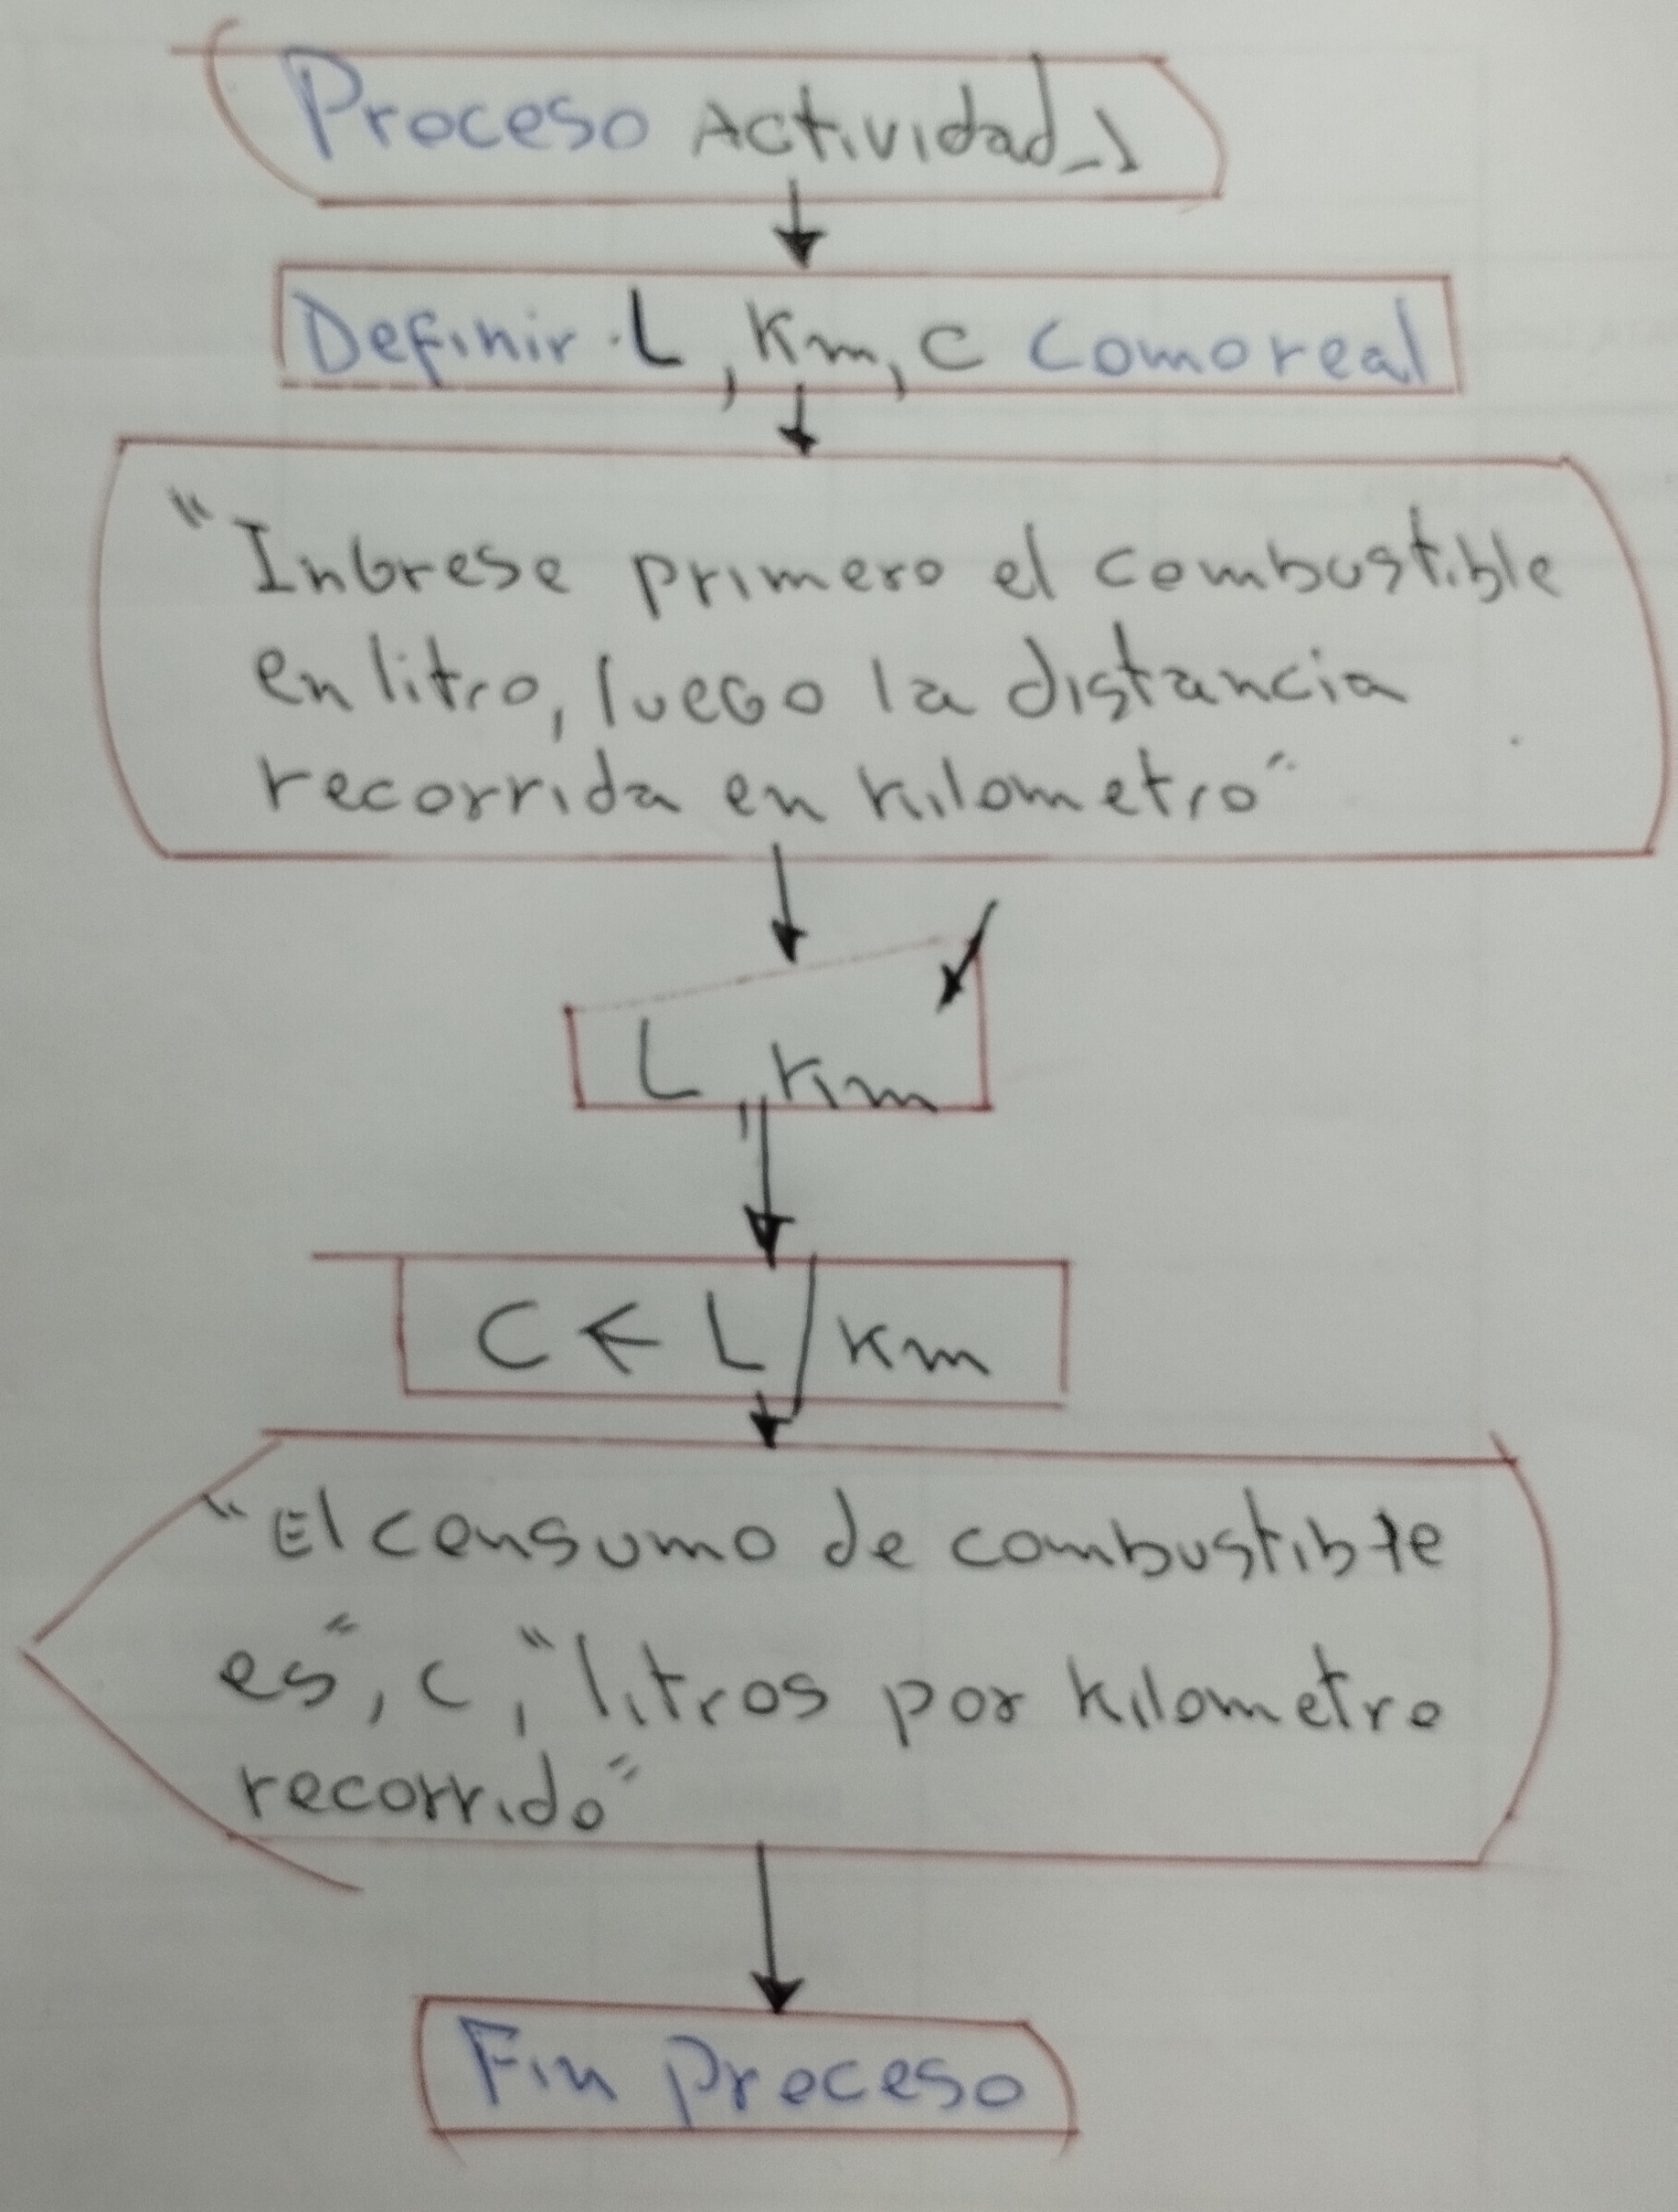 Proceso Actividad_1
Definir L, Km, C como real
"Ingrese primero el combustible
en litro, luego la distancia
recorrida en kilometro"
L, Km
C ← L/Km
"El consumo de combustible
es", C, "litros por kilometro
recorrido"
Fin Proceso